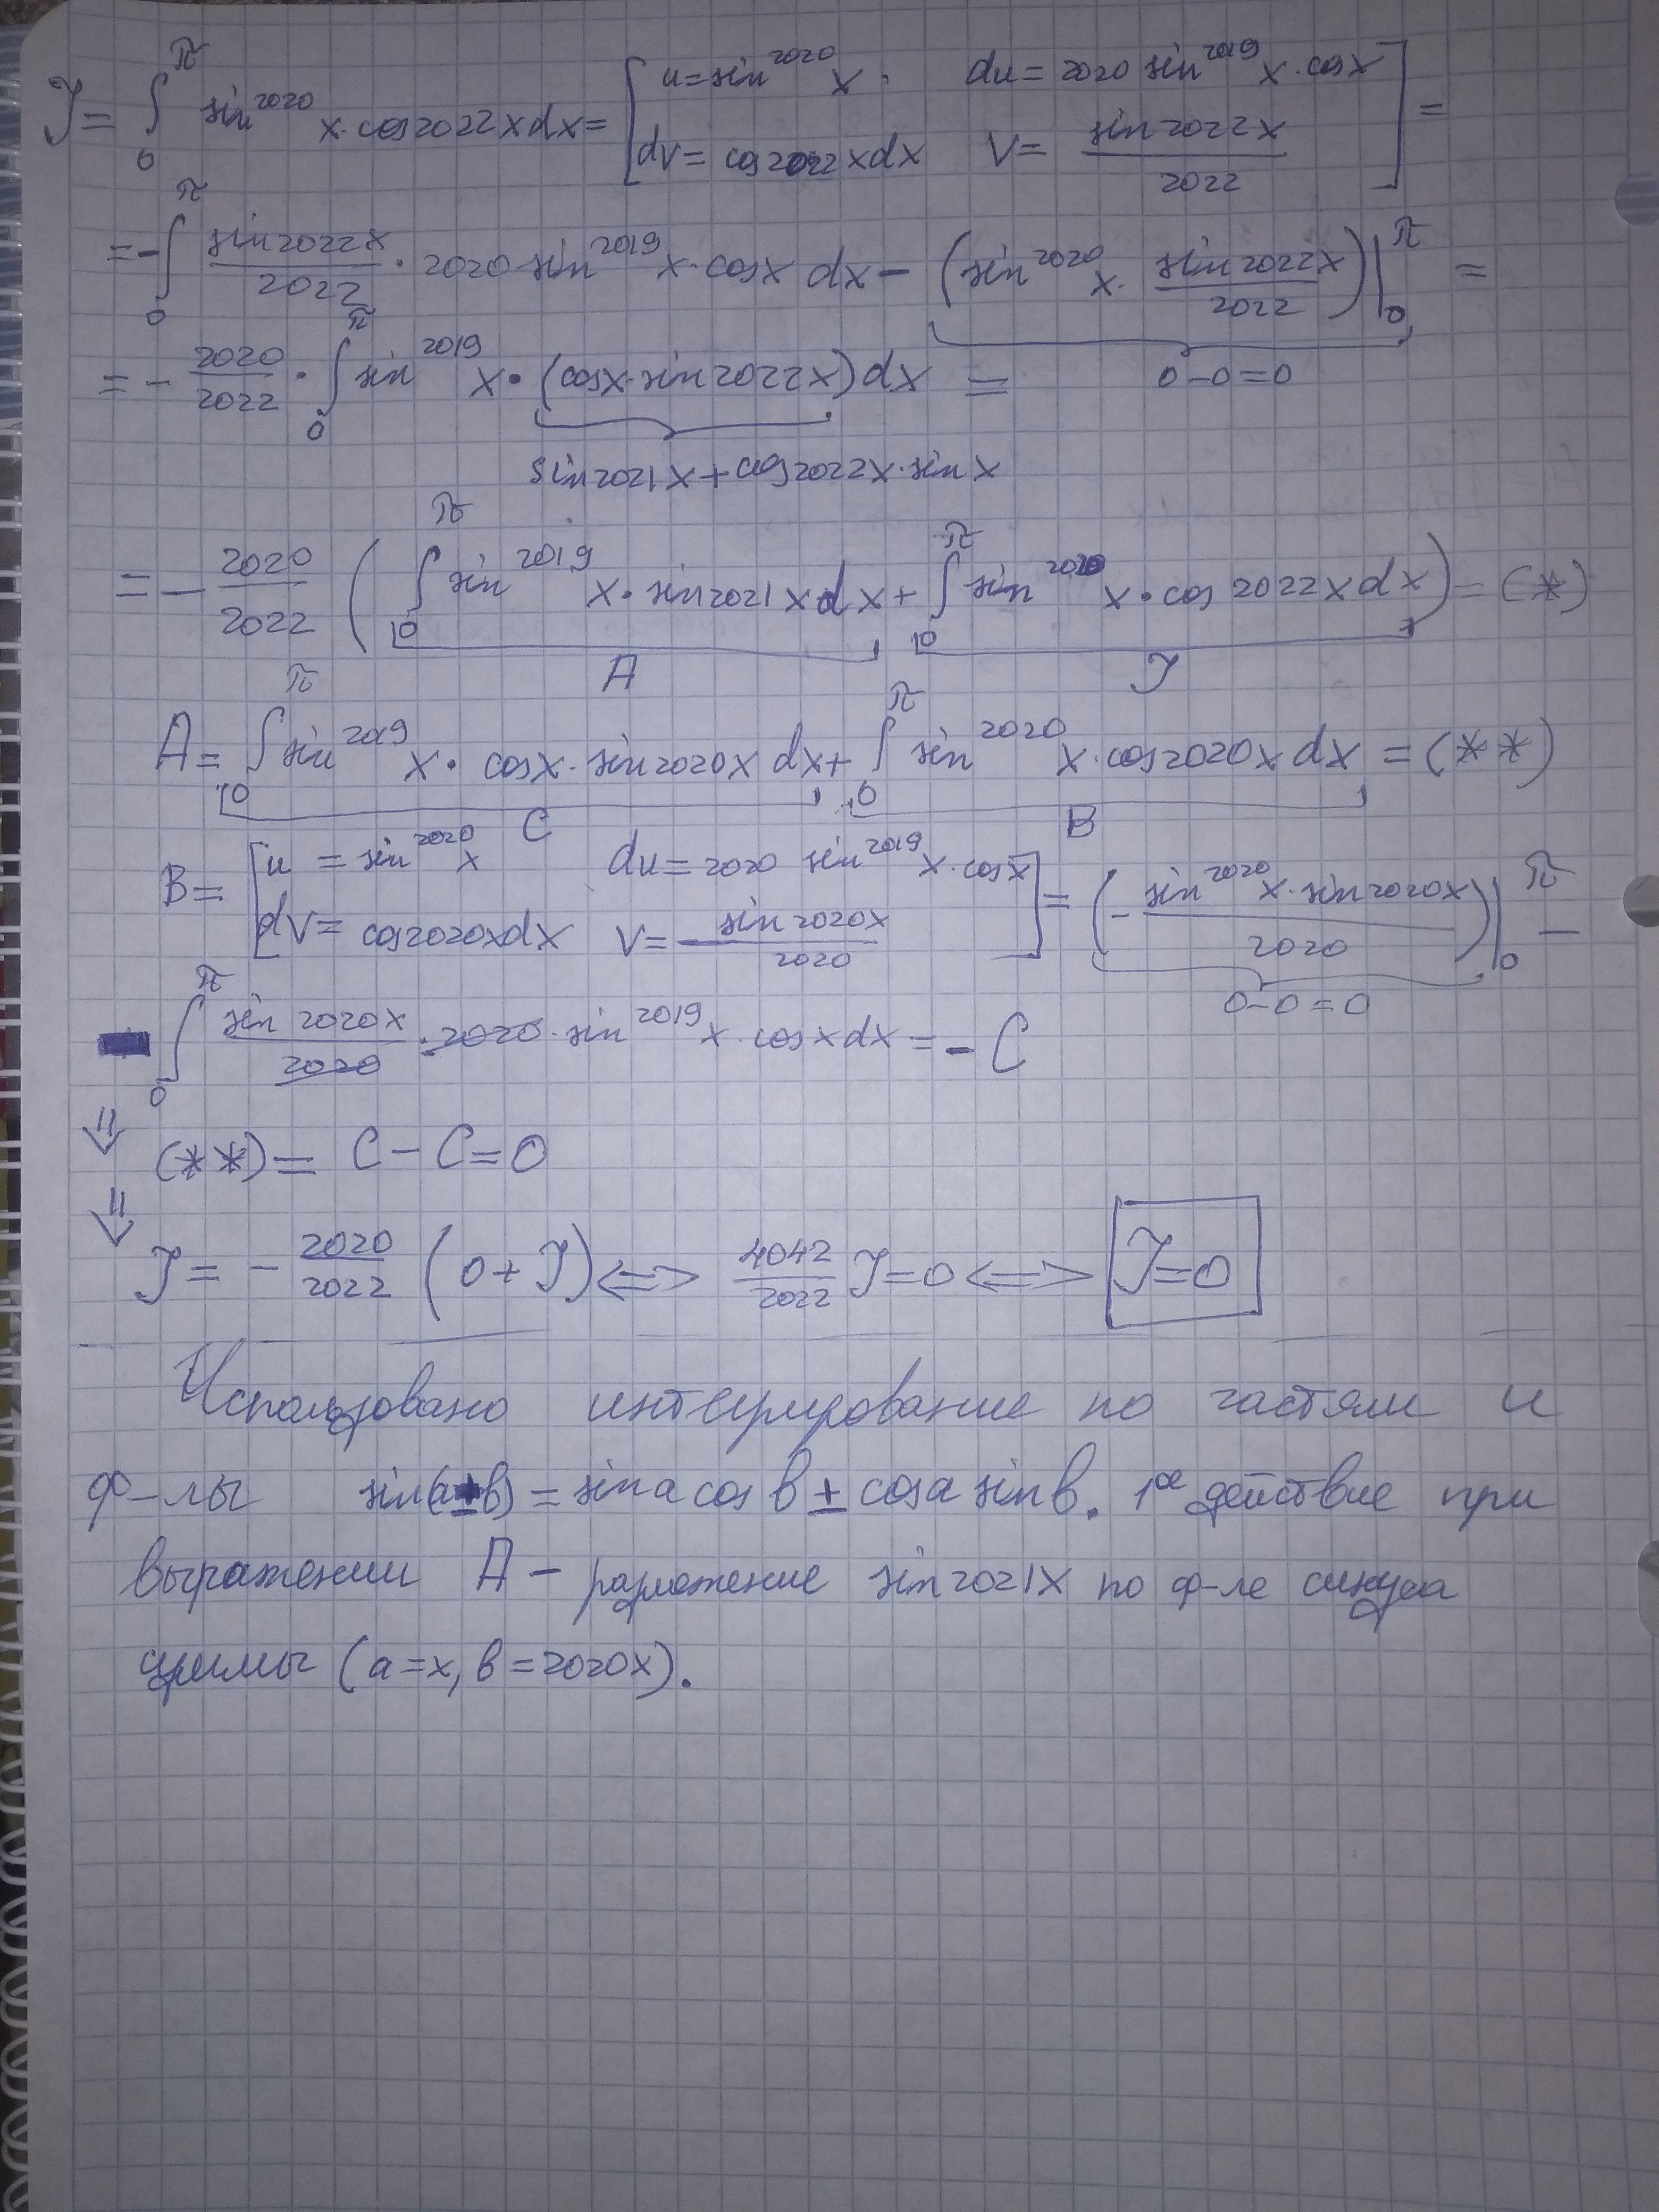 J = ∫₀^π sin²⁰²⁰ x · cos2022x dx = [ u = sin²⁰²⁰ x · du = 2020 sin²⁰¹⁹ x · cosx
dv = cos2022x dx V = sin2022x / 2022 ] =
= - ∫₀^π sin2022x / 2022 · 2020 · sin²⁰¹⁹ x · cosx dx - ( sin²⁰²⁰ x · sin2022x / 2022 ) |₀^π =
0 - 0 = 0
= - 2020/2022 · ∫₀^π sin²⁰¹⁹ x · (cosx · sin2022x) dx =
sin2021x + cos2022x · sinx
= - 2020/2022 ( ∫₀^π sin²⁰¹⁹ x · sin2021x dx + ∫₀^π sin²⁰²⁰ x · cos2022x dx ) = (*)
A J
A = ∫₀^π sin²⁰¹⁹ x · cosx · sin2020x dx + ∫₀^π sin²⁰²⁰ x · cos2020x dx = (**)
C B
B = [ u = sin²⁰²⁰ x du = 2020 sin²⁰¹⁹ x · cosx
dV = cos2020x dx V = - sin2020x / 2020 ] = ( - sin²⁰²⁰ x · sin2020x / 2020 ) |₀^π -
0 - 0 = 0
∫₀^π sin2020x / 2020 · 2020 · sin²⁰¹⁹ x · cosx dx = - C
⇓ (**) = C - C = 0
⇓ J = - 2020/2022 (0 + J) <=> 4042/2022 J = 0 <=> J = 0
Использовано интегрирование по частям и
ф-лы sin(a±b) = sin a cos b ± cos a sin b. 1ое действие при
выражении A – разложение sin2021x по ф-ле синуса
суммы (a=x, b=2020x).